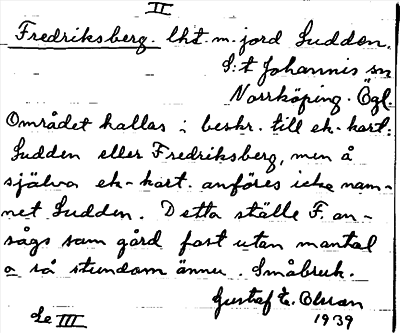 II
Fredriksberg. lht m. jord Sudden.
S:t Johannis sn
Norrköping. Ögl.
Området kallas i beskr. till ek-kart.
Sudden eller Fredriksberg, men å
själva ek-kart. anföres icke nam-
net Sudden. Detta ställe F. an-
sågs som gård fast utan mantal
o så stundom ännu. Småbruk.
Gustaf E. Olsson
1939
Se III